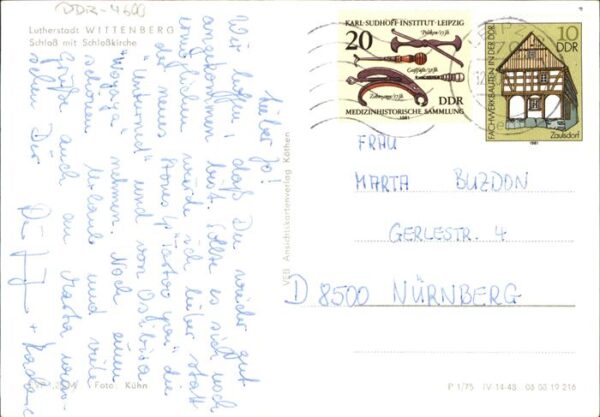 DDR-4600
Lutherstadt WITTENBERG
Schloß mit Schloßkirche
Lieber Jo!
Wir hoffen, daß Du wieder gut
angekommen bist. Sollte es sich noch
ermöglichen würde ich lieber statt
der neuen Stones LP "Tattoo you" die
und von Osibisa
nehmen. Noch einen
schönen Urlaub und viele
Grüße auch an Marta
Dir
KARL-SUDHOFF-INSTITUT · LEIPZIG
20
DDR
MEDIZINHISTORISCHE SAMMLUNG
1981
10
DDR
FACHWERKBAUTEN IN DER DDR
Zaulsdorf
1981
FRAU
MARTA BUZDON
GERLESTR. 4
D 8500 NÜRNBERG
VEB Ansichtskartenverlag Köthen
Foto: Kühn
P 1/75 IV-14-48 06 03 19 216